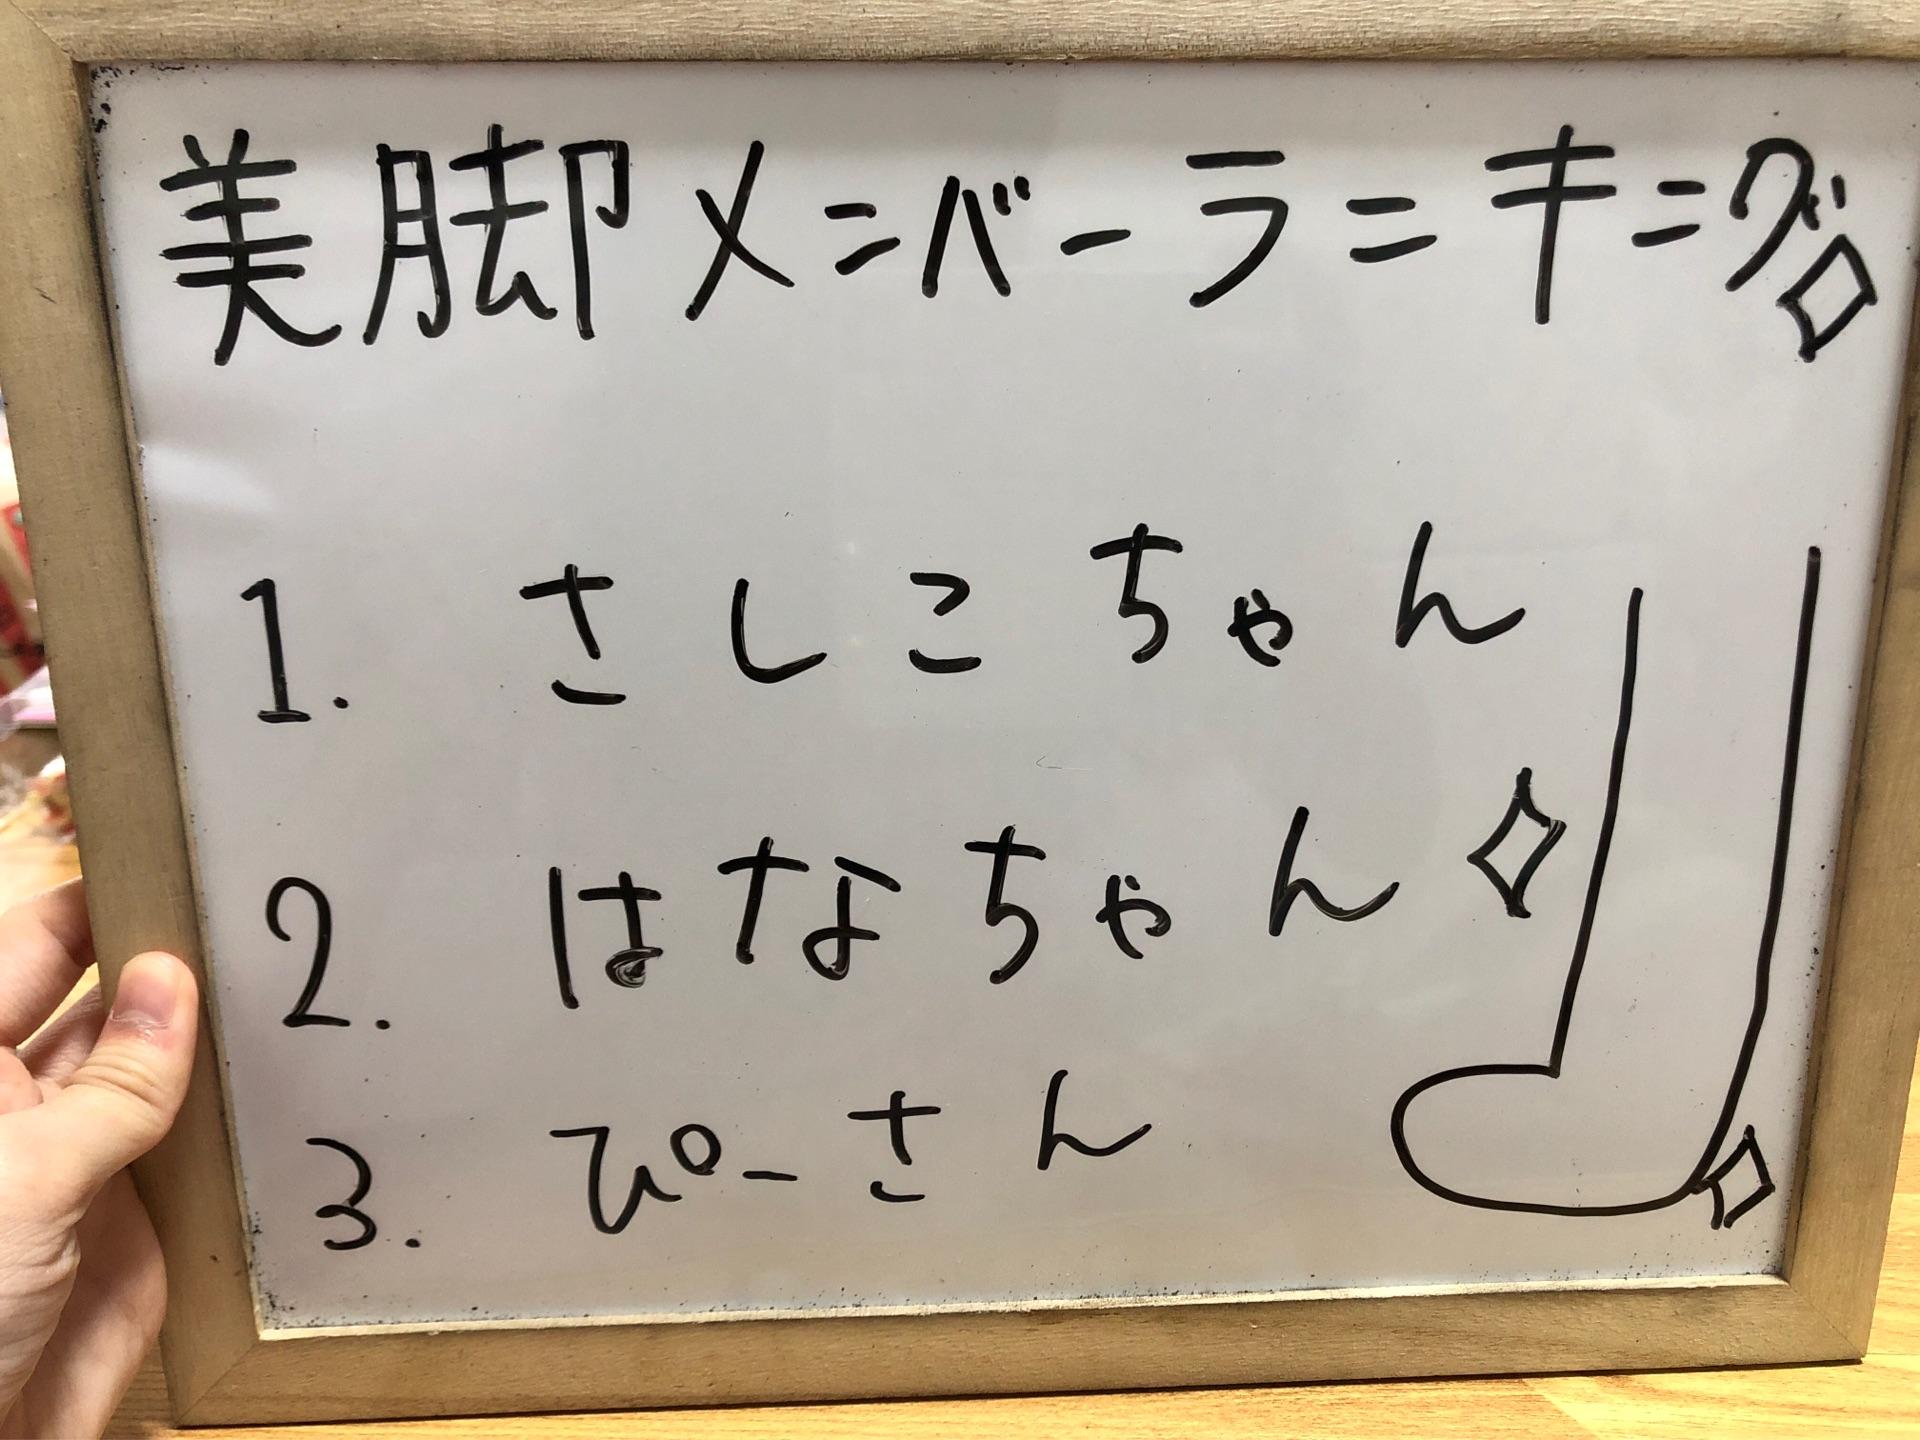 美脚メンバーランキング
1. さしこちゃん
2. はなちゃん
3. ぴーさん